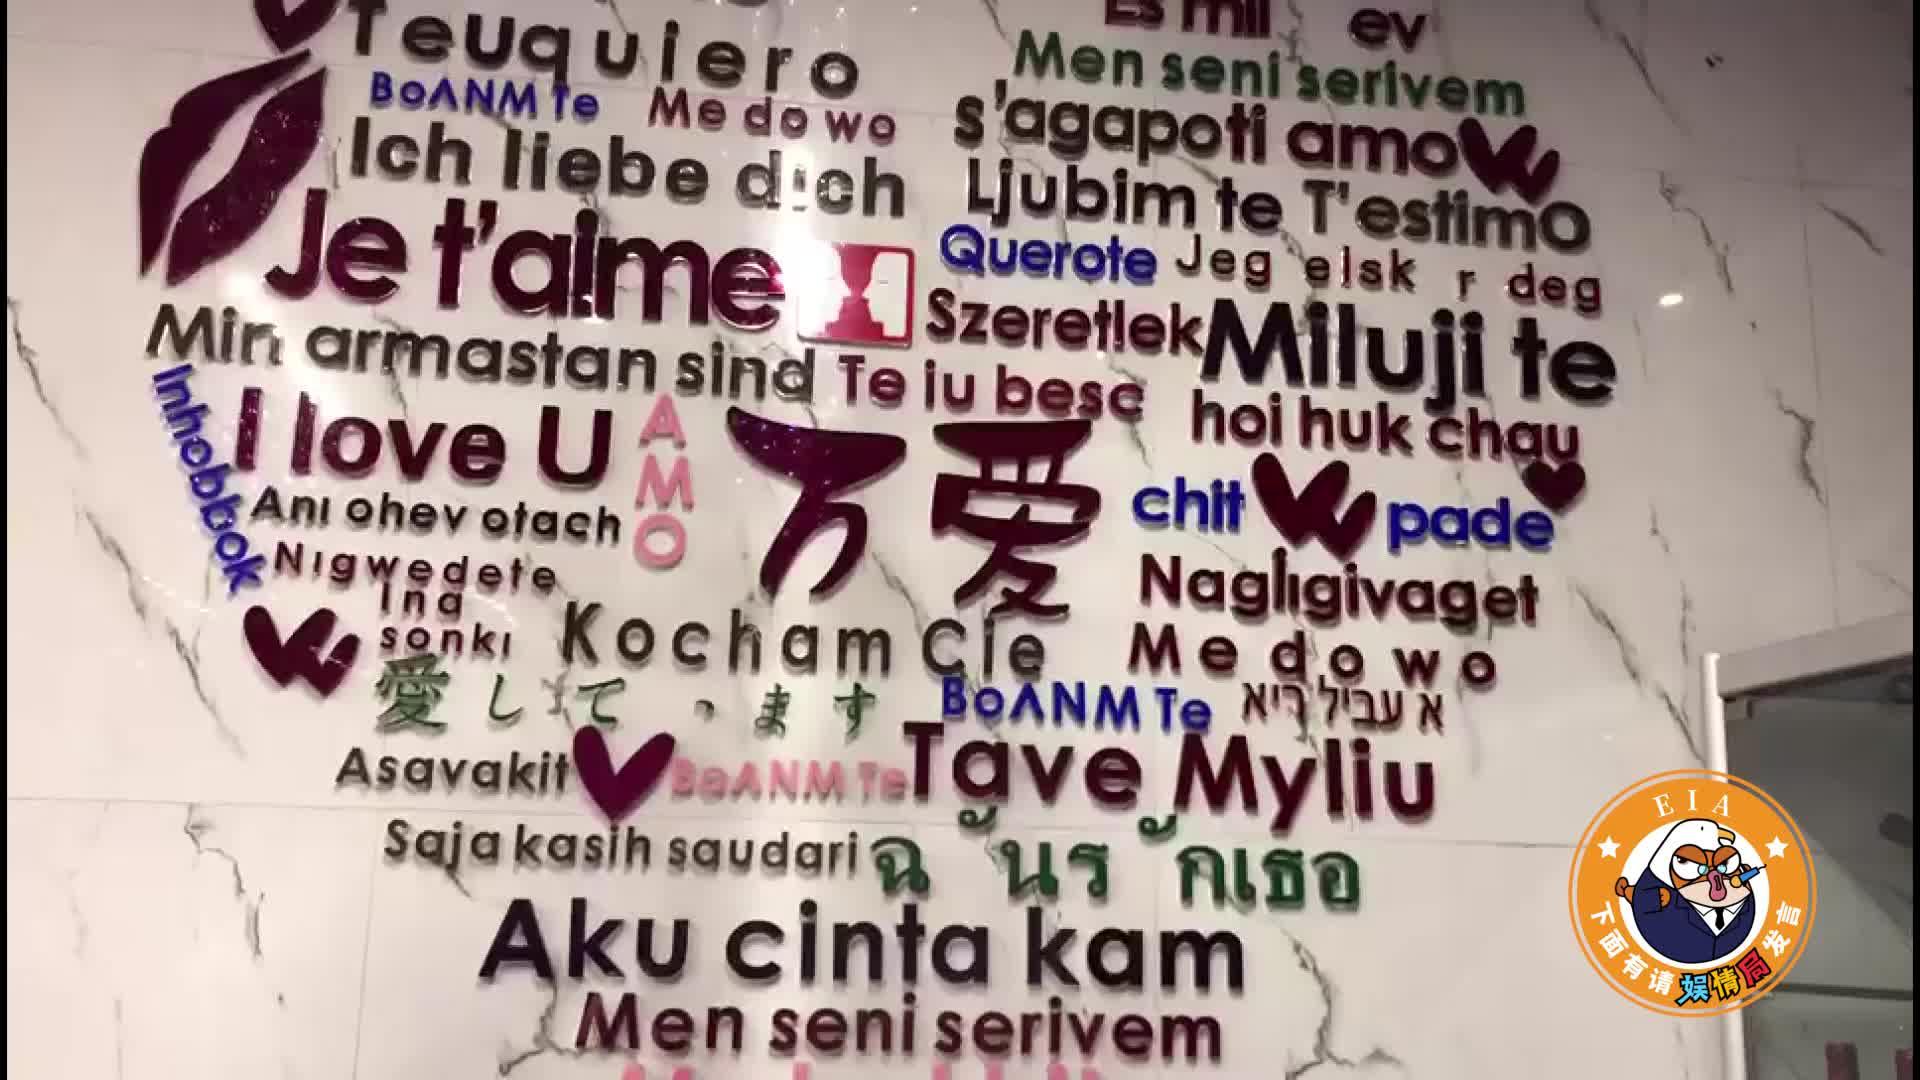 Teuquiero
BoΛNM Te
Me do wo
Ich liebe dich
Je t'aime
Min armastan sind
Te iu besc
I love U
AMO
Inhobbok
Ani ohev otach
Nigwedete
Ina
sonki
万爱
Kocham Cie
愛してっます
BoΛNM Te
Asavakit
BoΛNM Te
Tave Myliu
Saja kasih saudari
ฉ ันร ักเธอ
Aku cinta kam
Men seni serivem
Es mil
ev
Men seni serivem
s'agapoti amo
Ljubim te T'estimo
Querote
Jeg elsk r deg
Szeretlek
Miluji te
hoi huk chau
chit pade
Nagligivaget
Me do wo
א עביל ריא
EIA
下面有请娱情局发言